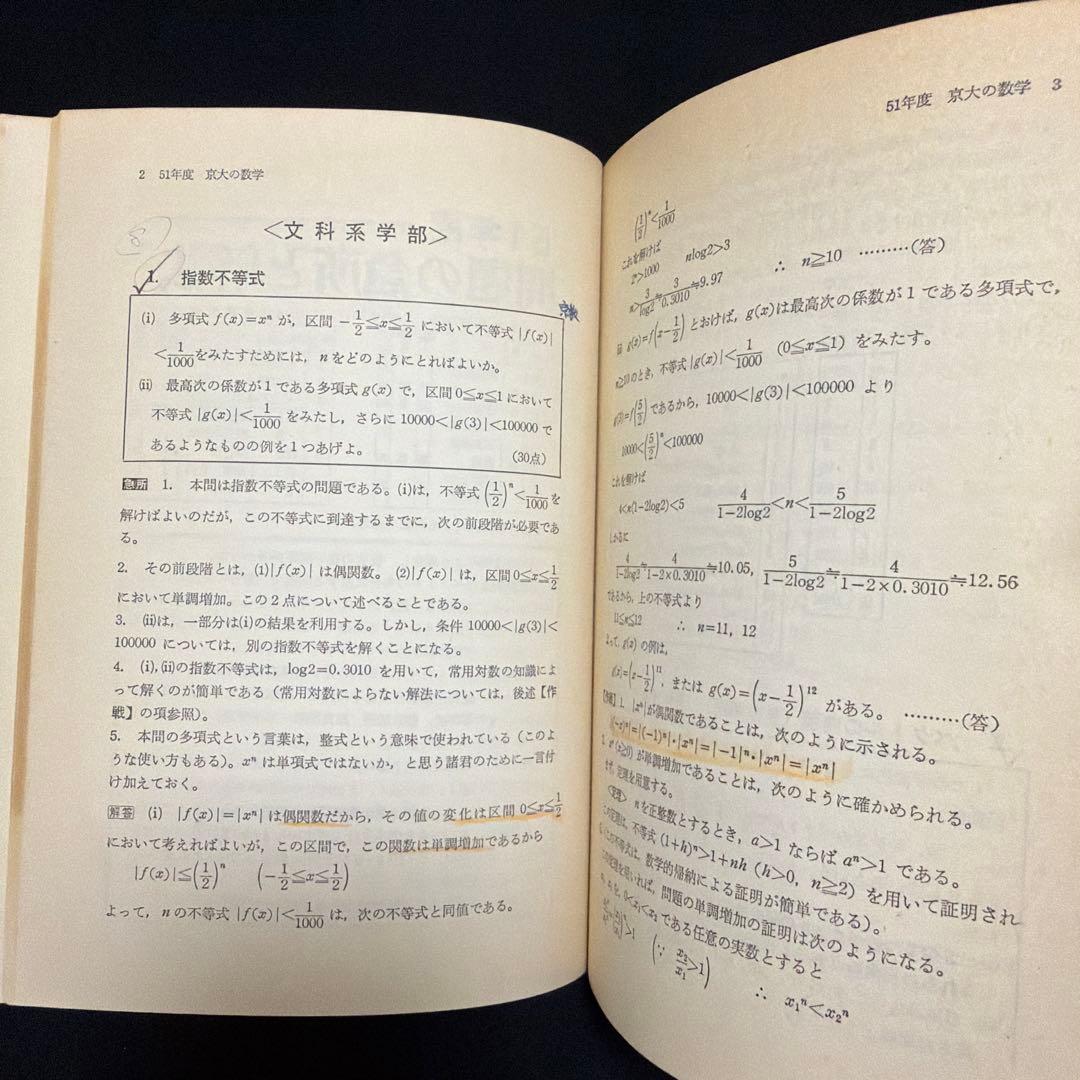 2 51年度 京大の数学
<文科系学部>
1. 指数不等式
(i) 多項式 f(x)=xⁿ が, 区間 -1/2≦x≦1/2 において不等式 |f(x)|
<1/1000をみたすためには, nをどのようにとればよいか。
(ii) 最高次の係数が1である多項式 g(x) で, 区間 0≦x≦1 において
不等式 |g(x)|<1/1000 をみたし, さらに 10000<|g(3)|<100000 で
あるようなものの例を1つあげよ。 (30点)
急所 1. 本問は指数不等式の問題である。(i)は, 不等式 (1/2)ⁿ<1/1000を
解けばよいのだが, この不等式に到達するまでに, 次の前段階が必要であ
る。
2. その前段階とは, (1)|f(x)| は偶関数。(2)|f(x)| は, 区間 0≦x≦1/2
において単調増加。この2点について述べることである。
3. (ii)は, 一部分は(i)の結果を利用する。しかし, 条件 10000<|g(3)|<
100000 については, 別の指数不等式を解くことになる。
4. (i),(ii)の指数不等式は, log2=0.3010 を用いて, 常用対数の知識によ
って解くのが簡単である (常用対数によらない解法については, 後述【作
戦】の項参照)。
5. 本問の多項式という言葉は, 整式という意味で使われている (このよ
うな使い方もある)。xⁿ は単項式ではないか, と思う諸君のために一言付
け加えておく。
解答 (i) |f(x)|=|xⁿ| は偶関数だから, その値の変化は区間 0≦x≦1/2
において考えればよいが, この区間で, この関数は単調増加であるから
|f(x)|≦(1/2)ⁿ (-1/2≦x≦1/2)
よって, nの不等式 |f(x)|<1/1000 は, 次の不等式と同値である。
51年度 京大の数学 3
(1/2)ⁿ<1/1000
これを解けば
2ⁿ>1000 nlog2>3
n>3/log2≒3/0.3010≒9.97 ∴ n≧10 ………(答)
g(x)=f(x-1/2) とおけば, g(x)は最高次の係数が1である多項式で,
n≧10のとき, 不等式 |g(x)|<1/1000 (0≦x≦1) をみたす。
g(3)=f(5/2) であるから, 10000<|g(3)|<100000 より
10000<(5/2)ⁿ<100000
これを解けば
4<n(1-2log2)<5 4/1-2log2<n<5/1-2log2
しかるに
4/1-2log2≒4/1-2×0.3010≒10.05, 5/1-2log2≒4/1-2×0.3010≒12.56
であるから, 上の不等式より
11≦n≦12 ∴ n=11, 12
よって, g(x) の例は,
g(x)=(x-1/2)¹¹, または g(x)=(x-1/2)¹² がある。………(答)
【作戦】1. |xⁿ|が偶関数であることは, 次のように示される。
|(-x)ⁿ|=|(-1)ⁿ|・|xⁿ|=|-1|ⁿ・|xⁿ|=|xⁿ|
2. xⁿ(x≧0) が単調増加であることは, 次のように確かめられる。
まず, 定理を用意する。
<定理> n を正整数とするとき, a>1 ならば aⁿ>1 である。
この定理は, 不等式 (1+h)ⁿ>1+nh (h>0, n≧2) を用いて証明され
る(この不等式は, 数学的帰納による証明が簡単である)。
この定理を用いれば, 問題の単調増加の証明は次のようになる。
0<x₁<x₂ である任意の実数とすると
(∵ x₂/x₁>1) ∴ x₁ⁿ<x₂ⁿ